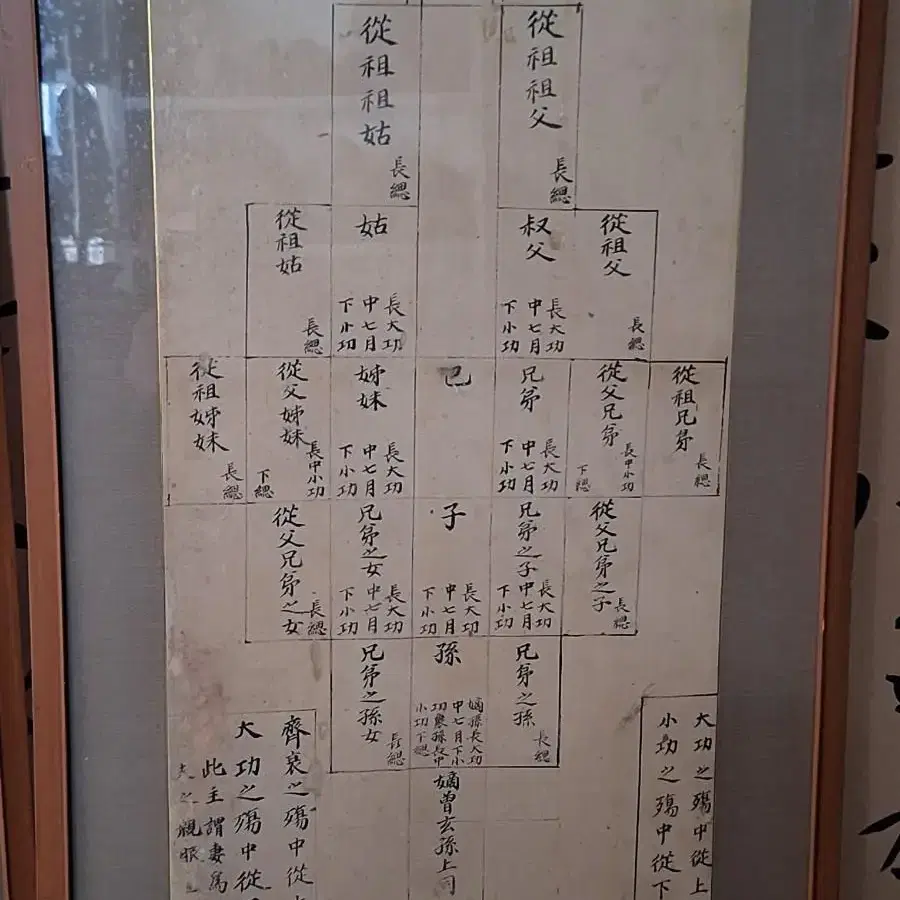 從祖祖父
長緦
從祖祖姑
長緦
從祖父
長緦
叔父
長大功
中七月
下小功
姑
長大功
中七月
下小功
從祖姑
長緦
從祖兄弟
長緦
從父兄弟
長中小功
下緦
兄弟
長大功
中七月
下小功
己
姊妹
長大功
中七月
下小功
從父姊妹
長中小功
下緦
從祖姊妹
長緦
從父兄弟之子
長緦
兄弟之子
長大功
中七月
下小功
子
長大功
中七月
下小功
兄弟之女
長大功
中七月
下小功
從父兄弟之女
長緦
兄弟之孫
長緦
孫
嫡孫長大功
中七月下小
功衆孫長中
小功下緦
兄弟之孫女
長緦
嫡曾玄孫上同
大功之殤中從上
小功之殤中從下
齊衰之殤中從
大功之殤中從
此主謂妻為
夫之親服